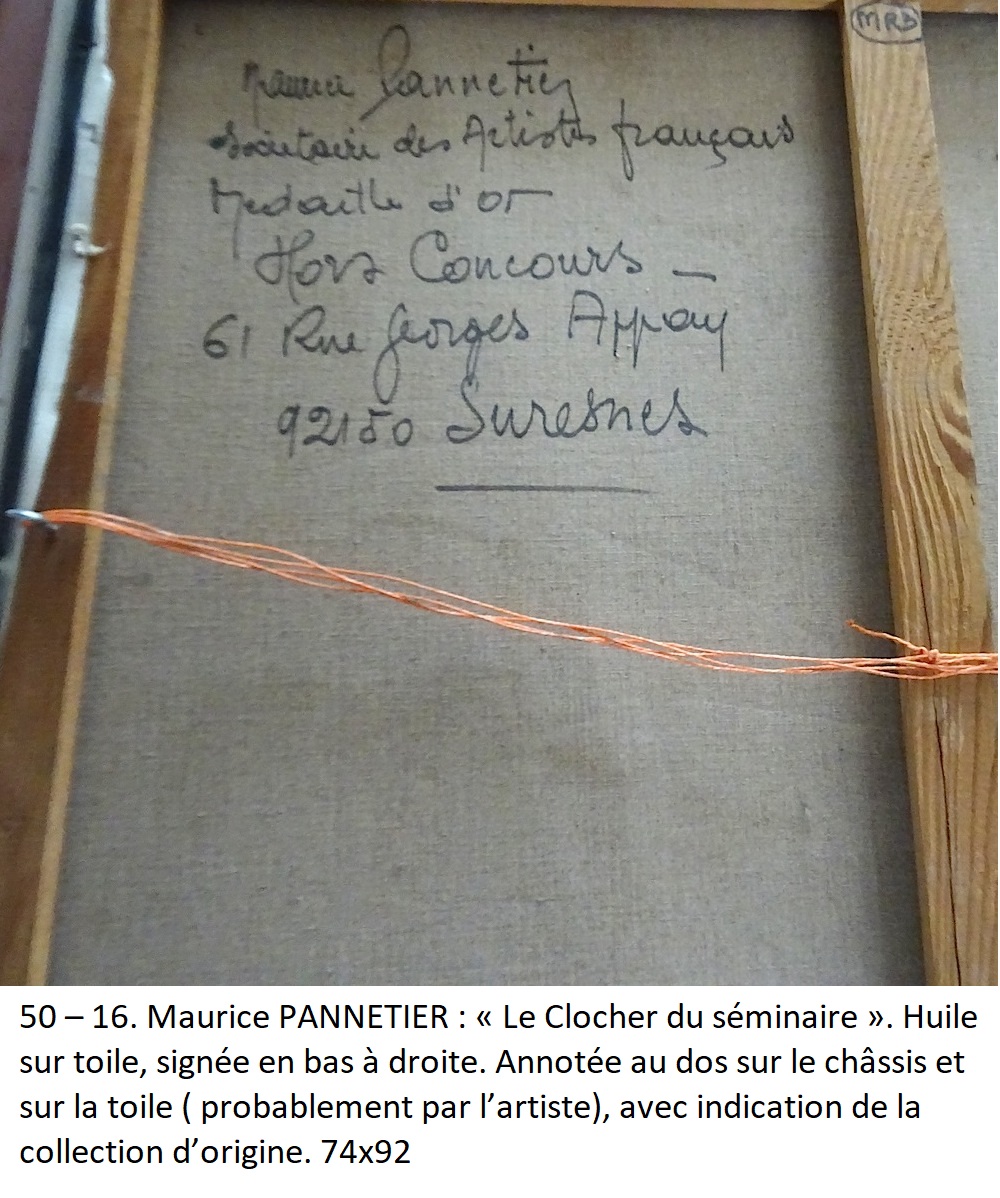 MRB
Maurice Pannetier
Sociétaire des Artistes français
Medaille d'or
Hors Concours –
61 Rue Georges Appay
92150 Suresnes
50 – 16. Maurice PANNETIER : « Le Clocher du séminaire ». Huile
sur toile, signée en bas à droite. Annotée au dos sur le châssis et
sur la toile ( probablement par l’artiste), avec indication de la
collection d’origine. 74x92